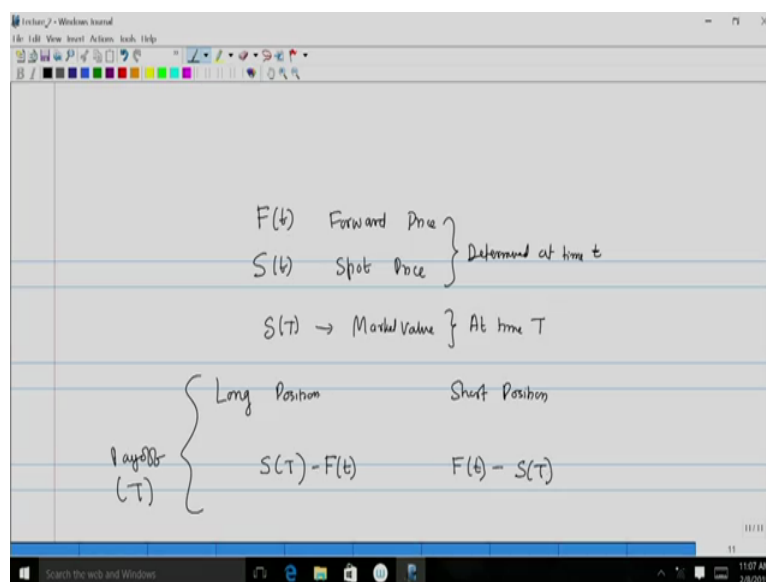 Lecture_2 - Windows Journal
File Edit View Insert Actions Tools Help
B I
F(t) Forward Price
S(t) Spot Price
} Determined at time t
S(T) → Market Value } At time T
Long Position Short Position
Payoff
(T)
S(T) - F(t) F(t) - S(T)
11/11
11
Search the web and Windows
11:07 AM